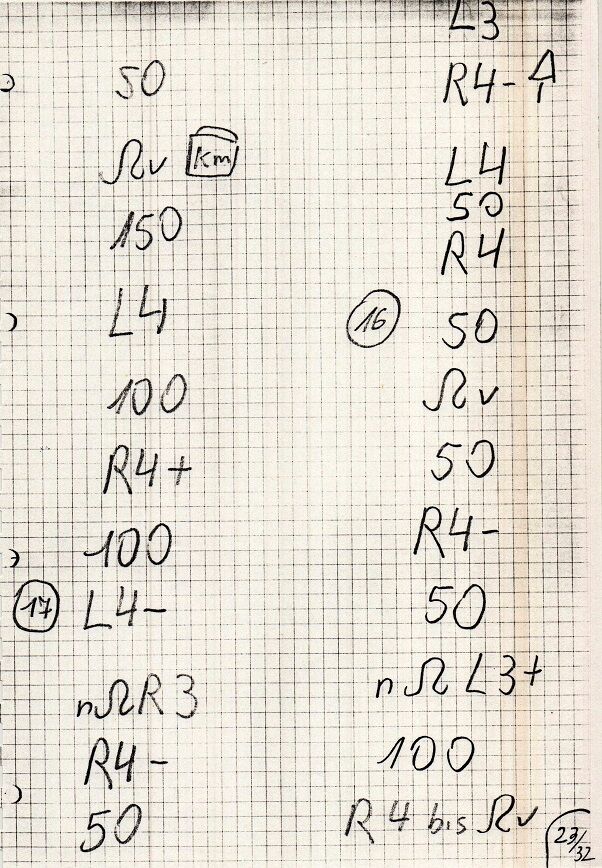 50
Ωv Km
150
L4
100
R4+
100
17 L4-
nΩR3
R4-
50
L3
R4-
L4
50
R4
16 50
Ωv
50
R4-
50
nΩL3+
100
R4 bis Ωv
23/32